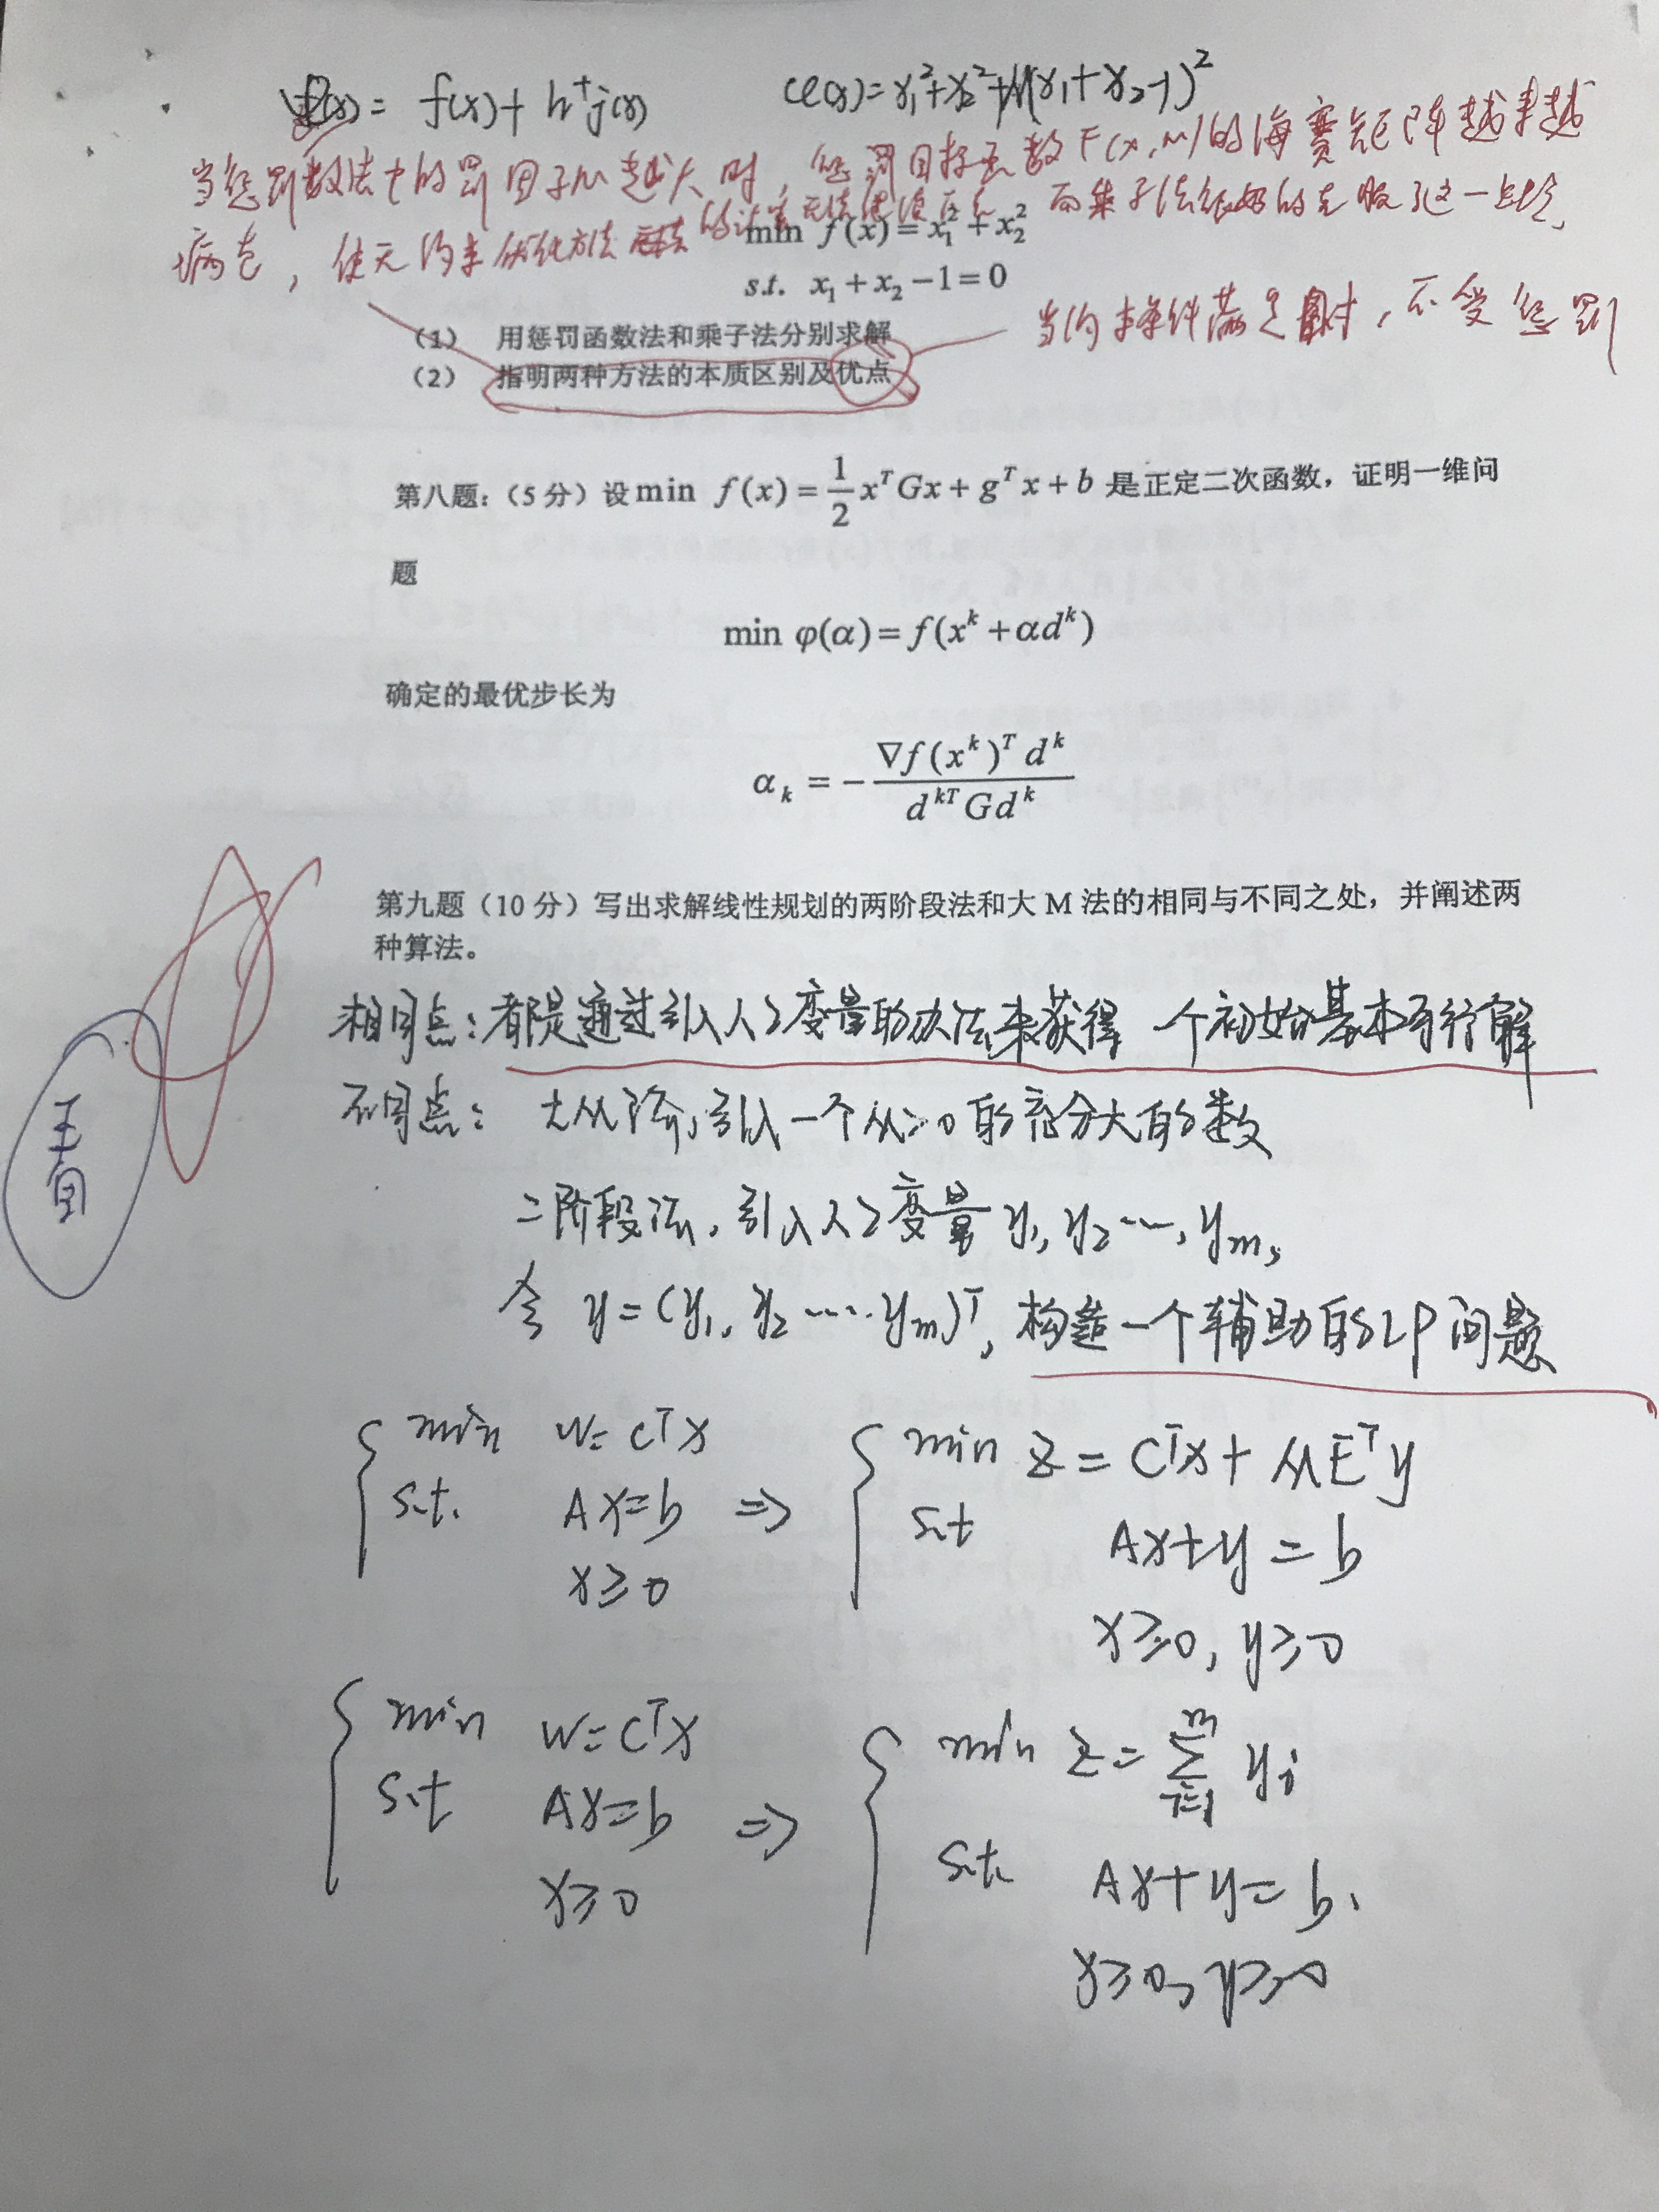 φ(x) = f(x) + h⁺j(x)    φ(x) = x₁²+x₂²+M(x₁+x₂-1)²
当惩罚数法中的罚因子M越大时，惩罚目标函数F(x,M)的海赛矩阵越来越
病态，使无约束优化方法的计算无法继续下去 而乘子法很好的克服了这一点
min f(x) = x₁² + x₂²
s.t. x₁ + x₂ − 1 = 0
当约束条件满足时，不受惩罚
（1） 用惩罚函数法和乘子法分别求解
（2） 指明两种方法的本质区别及优点
第八题：（5 分）设 min f(x) = 1/2 xᵀGx + gᵀx + b 是正定二次函数，证明一维问
题
min φ(α) = f(xᵏ + αdᵏ)
确定的最优步长为
αₖ = − ∇f(xᵏ)ᵀ dᵏ / dᵏᵀGdᵏ
第九题（10 分）写出求解线性规划的两阶段法和大 M 法的相同与不同之处，并阐述两
种算法。
相同点：都是通过引入人工变量的办法来获得 一个初始基本可行解
不同点： 大M法，引入一个M>0的充分大的数
二阶段法，引入人工变量 y₁, y₂ ⋯, yₘ,
令 y = (y₁, y₂ ⋯⋯ yₘ)ᵀ, 构造一个辅助的LP问题
min W = CᵀX ⇒ min Z = CᵀX + MEᵀy
s.t. AX = b    s.t AX + y = b
X ≥ 0    X ≥ 0, y ≥ 0
min W = CᵀX ⇒ min Z = ∑ᵢ₌₁ᵐ yᵢ
s.t AX = b    s.t. AX + y = b.
X ≥ 0    X ≥ 0, y ≥ 0